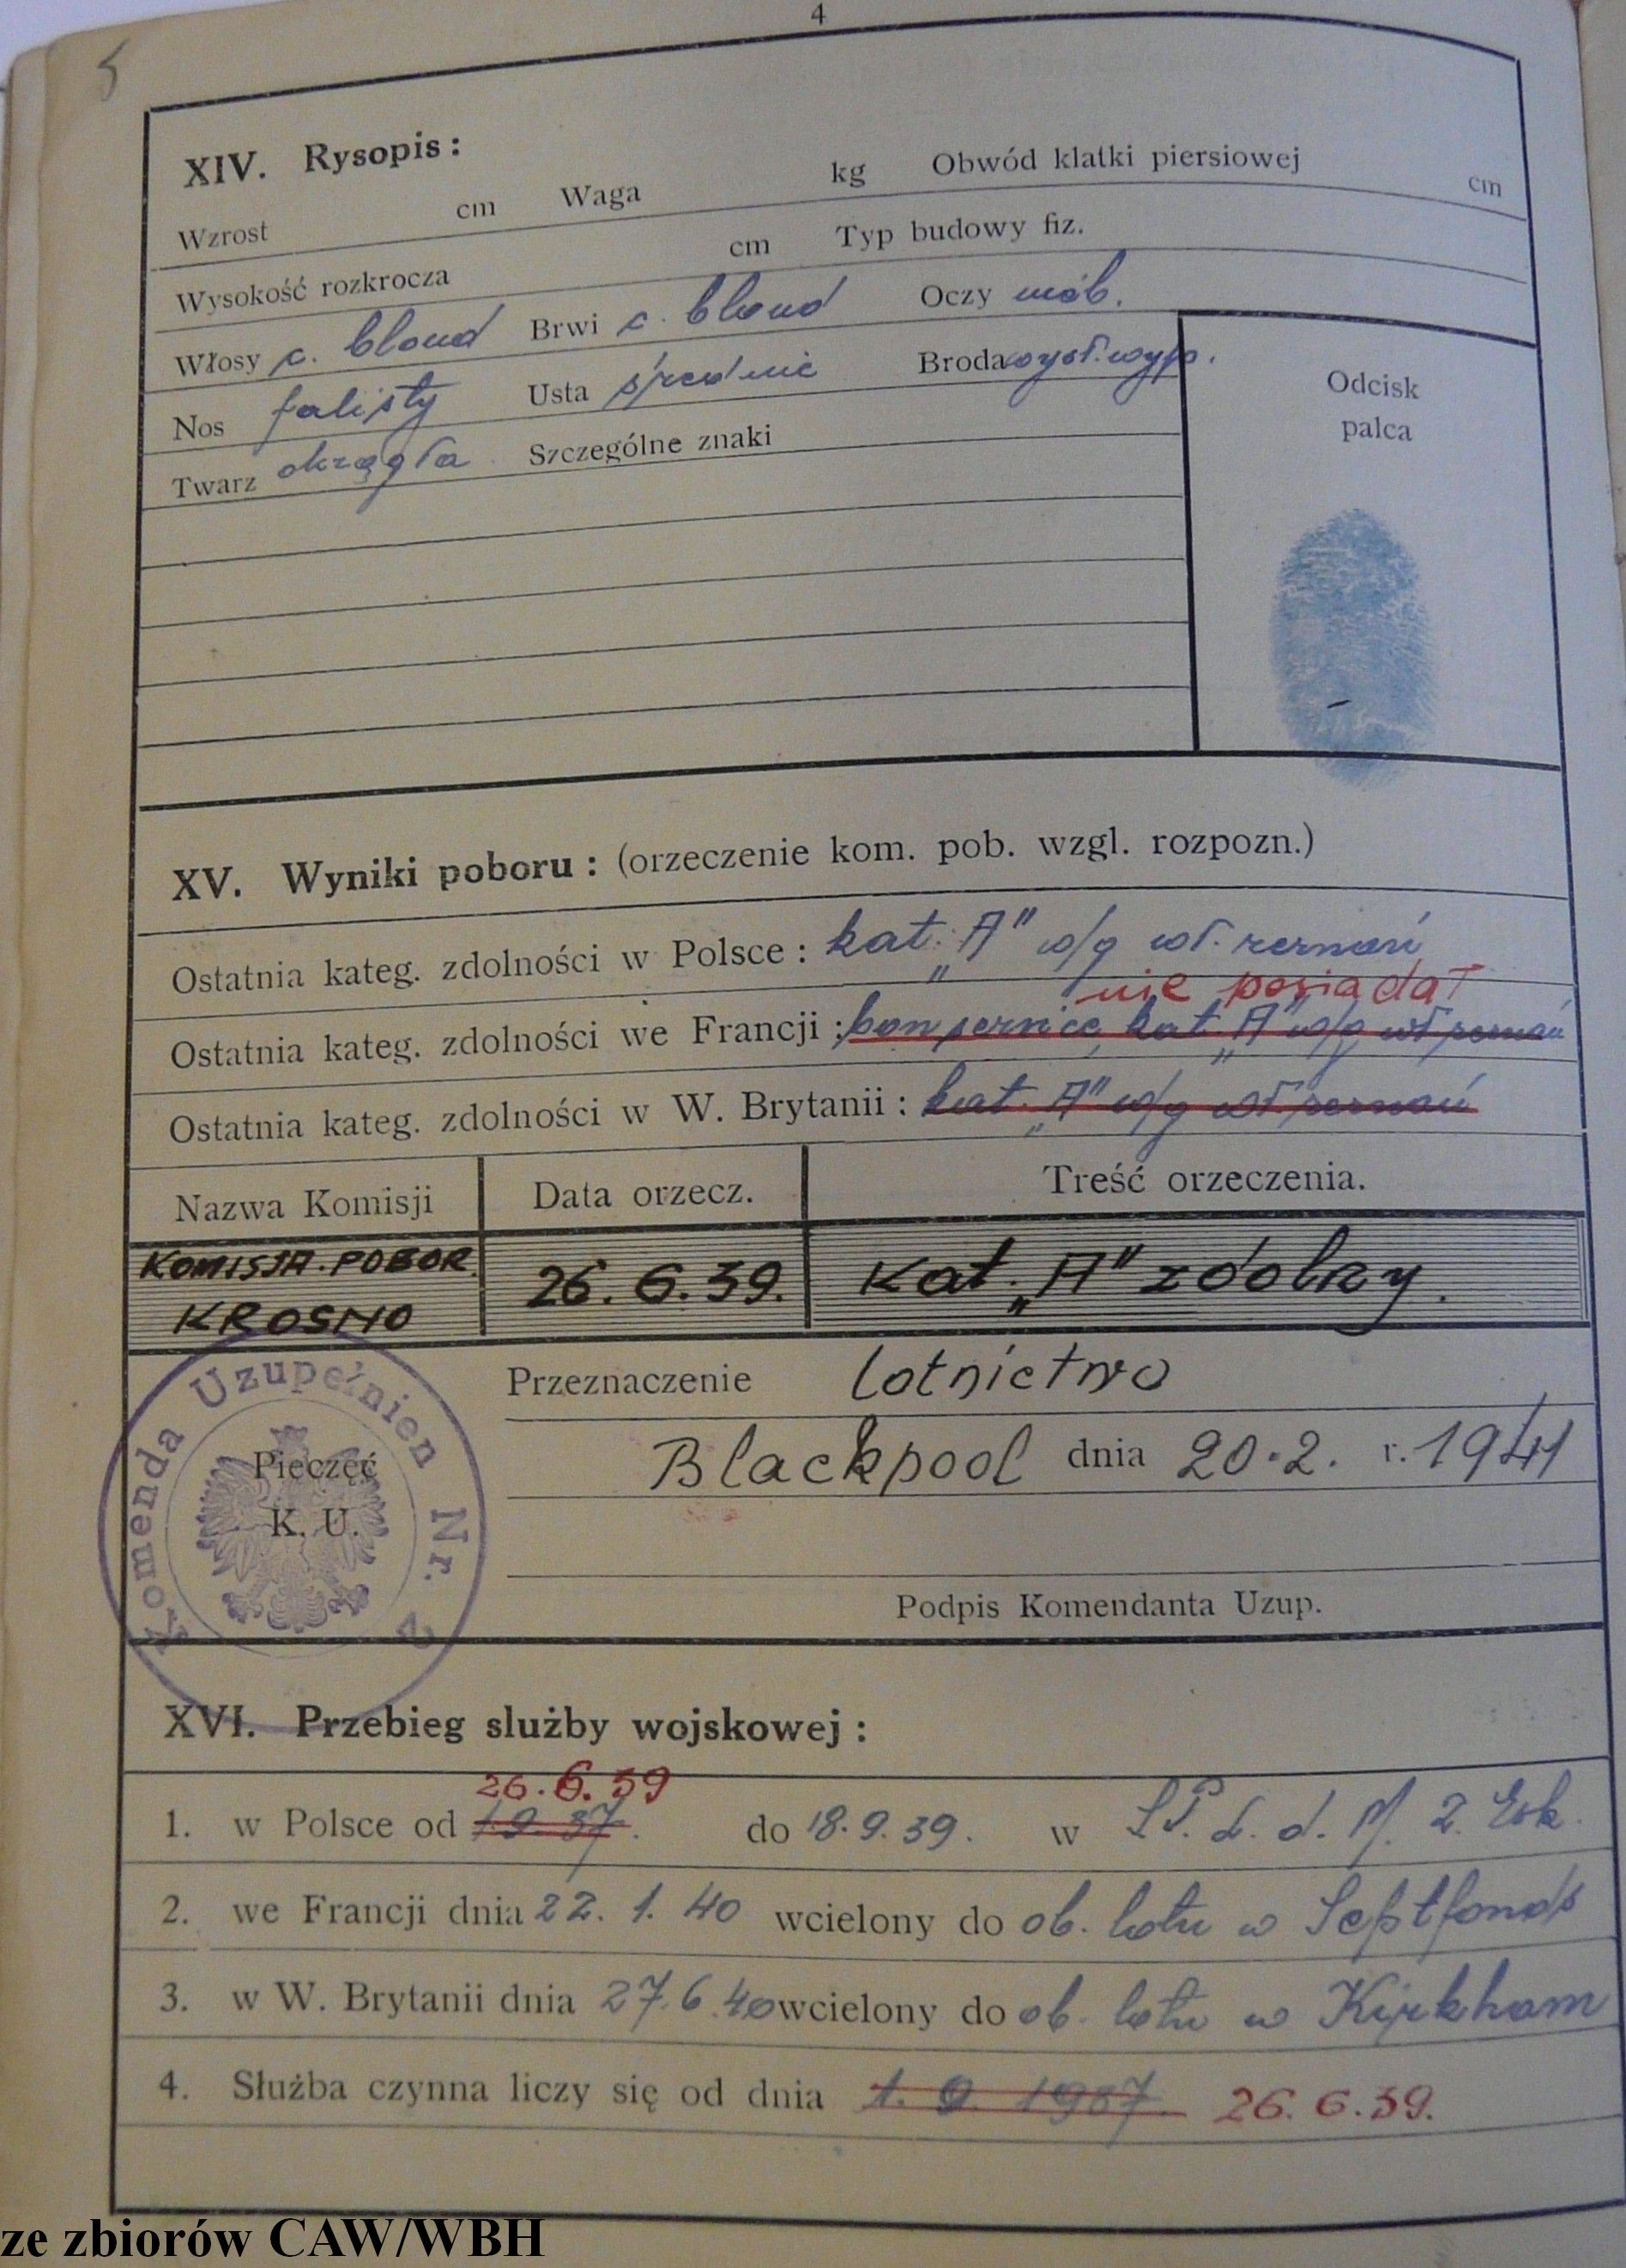 4
5
XIV. Rysopis:
Wzrost cm Waga kg Obwód klatki piersiowej cm
Wysokość rozkrocza cm Typ budowy fiz.
Włosy c. blond Brwi c. blond Oczy nieb.
Nos falisty Usta średnie Broda wyst.
Twarz okrągła Szczególne znaki
Odcisk
palca
XV. Wyniki poboru: (orzeczenie kom. pob. wzgl. rozpozn.)
Ostatnia kateg. zdolności w Polsce: kat. „A" w/g wł. zeznań
nie posiadał
Ostatnia kateg. zdolności we Francji: bon service kat. „A" w/g wł zeznań
Ostatnia kateg. zdolności w W. Brytanii: kat. „A" w/g wł. zeznań
Nazwa Komisji Data orzecz. Treść orzeczenia.
KOMISJA. POBOR. 26. 6. 39. Kat. „A" zdolny.
KROSNO
Przeznaczenie lotnictwo
Blackpool dnia 20.2. r. 1941
Pieczęć
K. U.
Komenda Uzupełnien Nr. 2
Podpis Komendanta Uzup.
XVI. Przebieg służby wojskowej:
26.6.39
1. w Polsce od 1.9.37. do 18.9.39. w S.P.L.d.M. 2. Esk.
2. we Francji dnia 22. 1. 40 wcielony do ob. lotn w Septfonds
3. w W. Brytanii dnia 27.6.40 wcielony do ob. lotn w Kirkham
4. Służba czynna liczy się od dnia 1. 9. 1937. 26.6.39.
ze zbiorów CAW/WBH